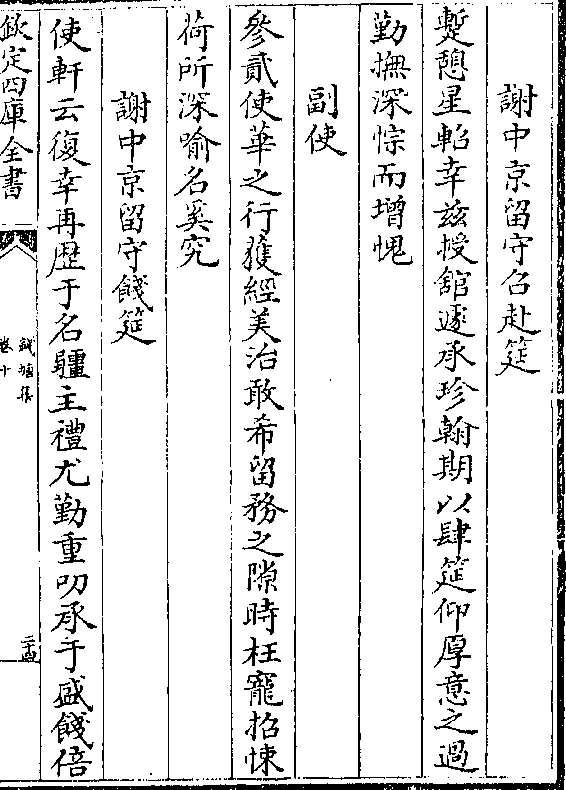 謝中京留守召赴筵
蹔憩星軺幸兹授舘遽承珍翰期以肆筵仰厚意之過
勤撫深悰而增愧
副使
參貳使華之行獲經美治敢希留務之隙時枉寵招悚
荷所深喻名奚究
謝中京留守餞筵
使軒云復幸再歴于名疆主禮尤勤重叨承于盛餞倍
欽定四庫全書
錢塘集
卷十
二十四